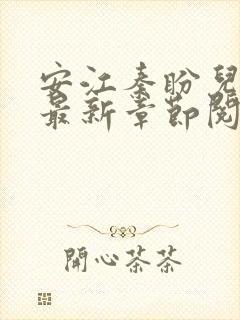 安江秦盼兒
最新章節閱
開心茶茶